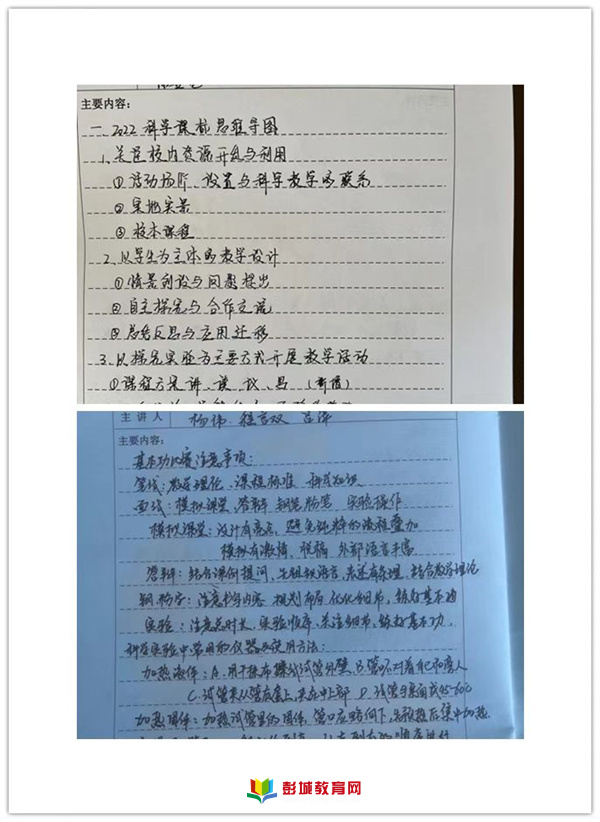 主要内容：
一、2022科学课标思维导图
1、关注校内资源开发与利用
①活动场所、设置与科学教学的联系
②实地实景
③校本课程
2、以学生为主体的教学设计
①情景创设与问题提出
②自主探究与合作交流
③总结反思与应用迁移
3、以探究实验为主要方式开展教学活动
主讲人 杨伟
主要内容：
基本功比赛注意事项：
笔试：教育理论、课程标准
面试：模拟课堂、答辩 钢笔粉笔 实验操作
模拟课堂：设计有亮点，避免纯粹的流程叠加
模拟有激情，脱稿 外部语言丰富
答辩：结合课例提问，先组织语言 结合教学理论
钢、粉字：注意书写内容 规划布局 优化细节，练好基本功
实验：注意总时长、实验顺序、关注细节，练好基本功。
科学实验中常用的仪器及使用方法：
加热液体：A.用干抹布擦拭试管外壁，B.管口不对着自己和旁人
C.试管夹从管底套上，夹在中上部 D.
加热固体：加热试管里的固体，管口应略向下，先预热后集中加热
彭城教育网